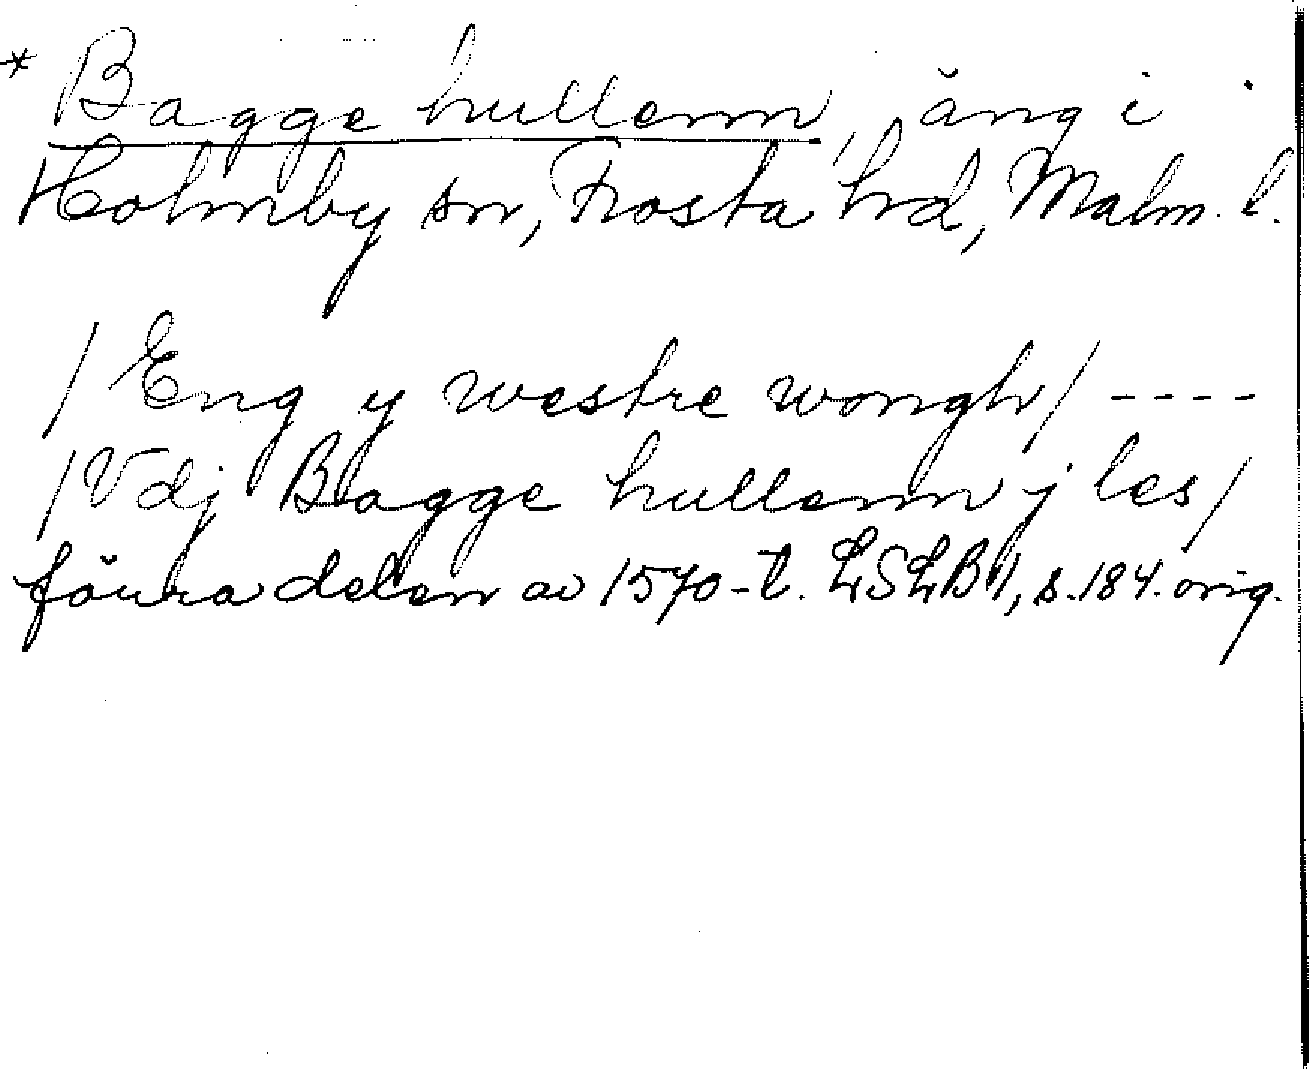 * Bagge hullenn, äng i
Holmby sn, Frosta hrd, Malm. l.
/ Eng y westre wongh / ----
/ Vdj Bagge hullenn j les /
förra delen av 1570-t. LSLB 1, s. 184. orig.